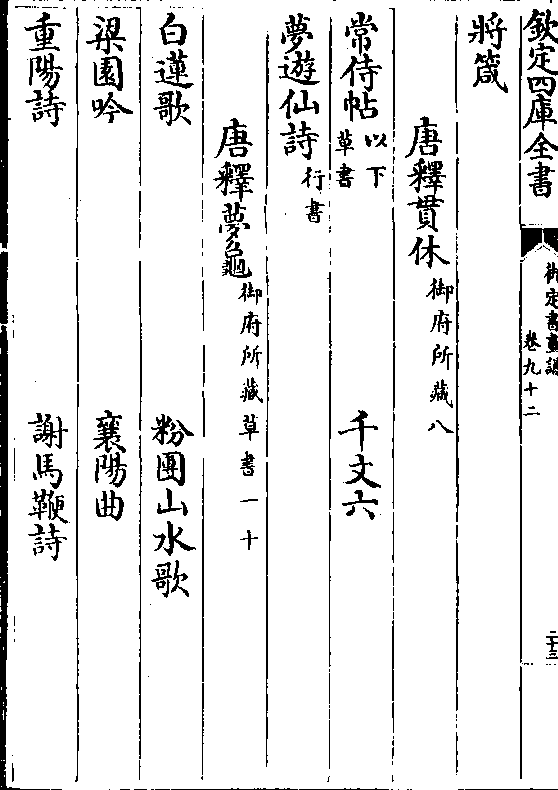 欽定四庫全書
御定書畫譜
卷九十二
二十三
將箴
唐釋貫休御府所藏八
常侍帖以下草書 千文六
夢遊仙詩行書
唐釋夢龜御府所藏草書一十
白蓮歌 粉團山水歌
梁園吟 襄陽曲
重陽詩 謝馬鞭詩